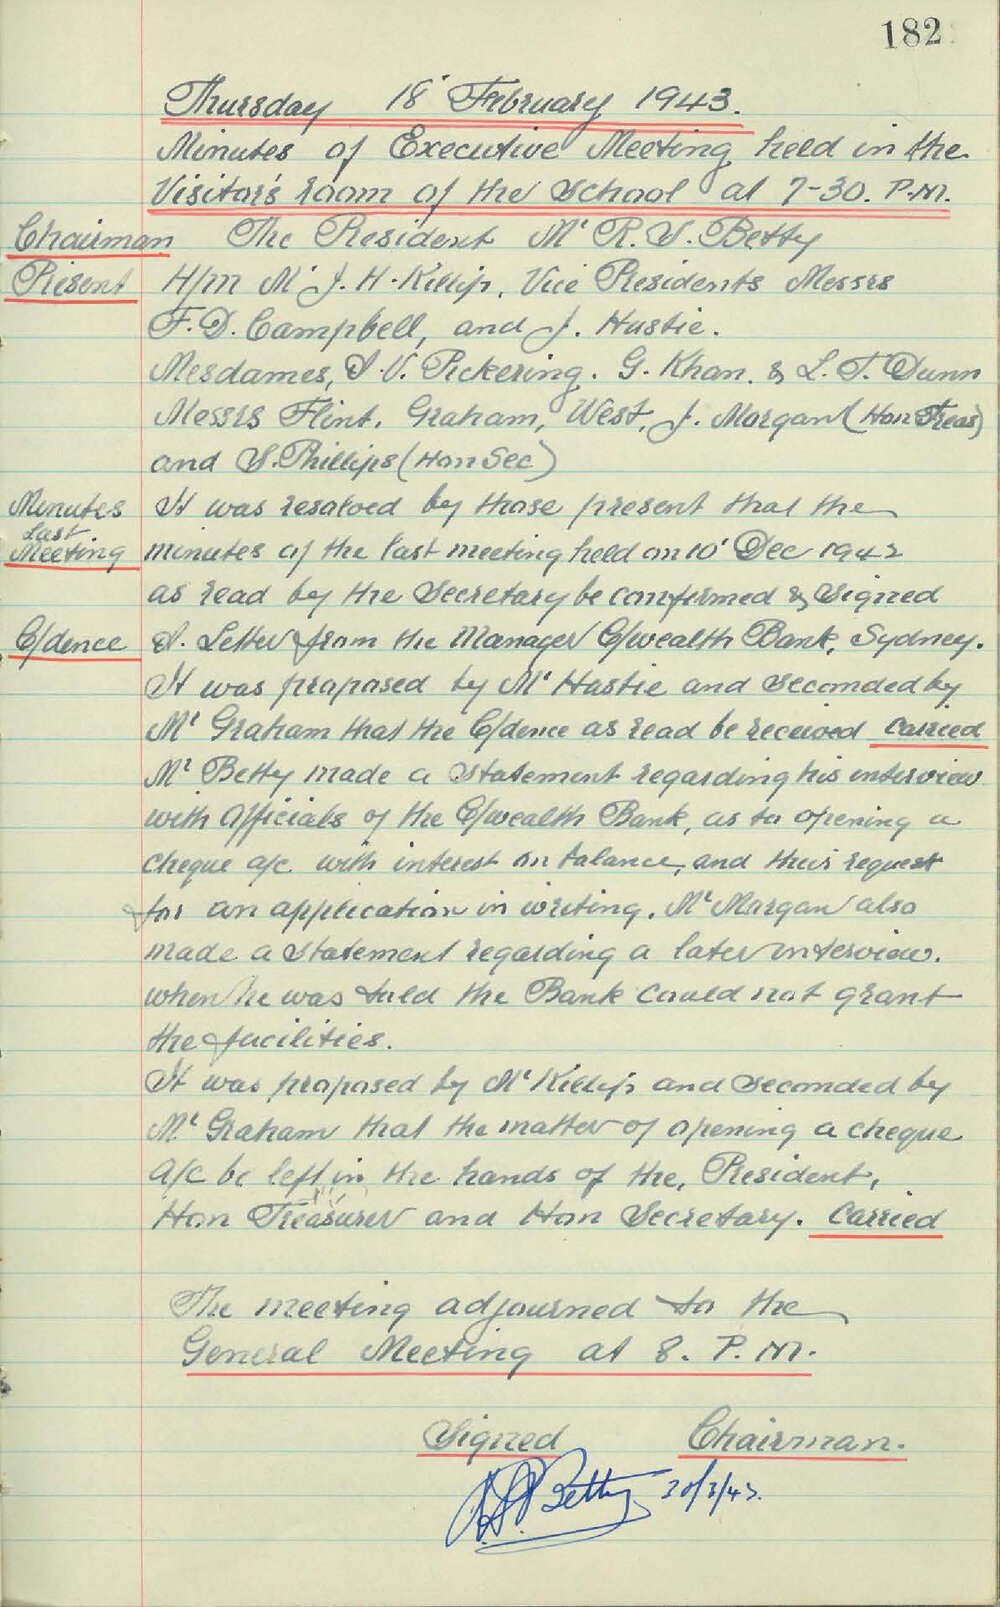 182
Thursday 18' February 1943.
Minutes of Executive Meeting held in the
Visitor's room of the School at 7-30. P.M.
Chairman The President Mr R. S. Betty
Present H/m Mr J. H. Killip, Vice Presidents Messrs
F. D. Campbell, and J. Hastie.
Mesdames, I. V. Pickering. G. Khan. & L. T. Dunn
Messrs Flint. Graham, West, J. Morgan (Hon Treas)
and S. Phillips (Hon Sec)
Minutes It was resolved by those present that the
Last
Meeting minutes of the last meeting held on 10' Dec 1942
as read by the Secretary be confirmed & Signed
C/dence Letter from the Manager C/wealth Bank, Sydney.
It was proposed by Mr Hastie and Seconded by
Mr Graham that the C/dence as read be received Carried
Mr Betty made a statement regarding his interview
with Officials of the C/wealth Bank, as to opening a
cheque a/c with interest on balance, and their request
for an application in writing. Mr Morgan also
made a statement regarding a later interview.
when he was told the Bank could not grant
the facilities.
It was proposed by Mr Killip and Seconded by
Mr Graham that the matter of opening a cheque
a/c be left in the hands of the, President,
Hon Treasurer and Hon Secretary. Carried
The meeting adjourned to the
General Meeting at 8. P.M.
Signed Chairman.
R S Betty